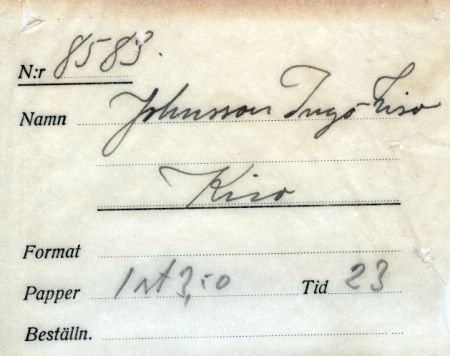 N:r 8583.
Namn Johnsson Inga-Lisa
Kisa
Format
Papper 1 st 3,-0 Tid 23
Beställn.